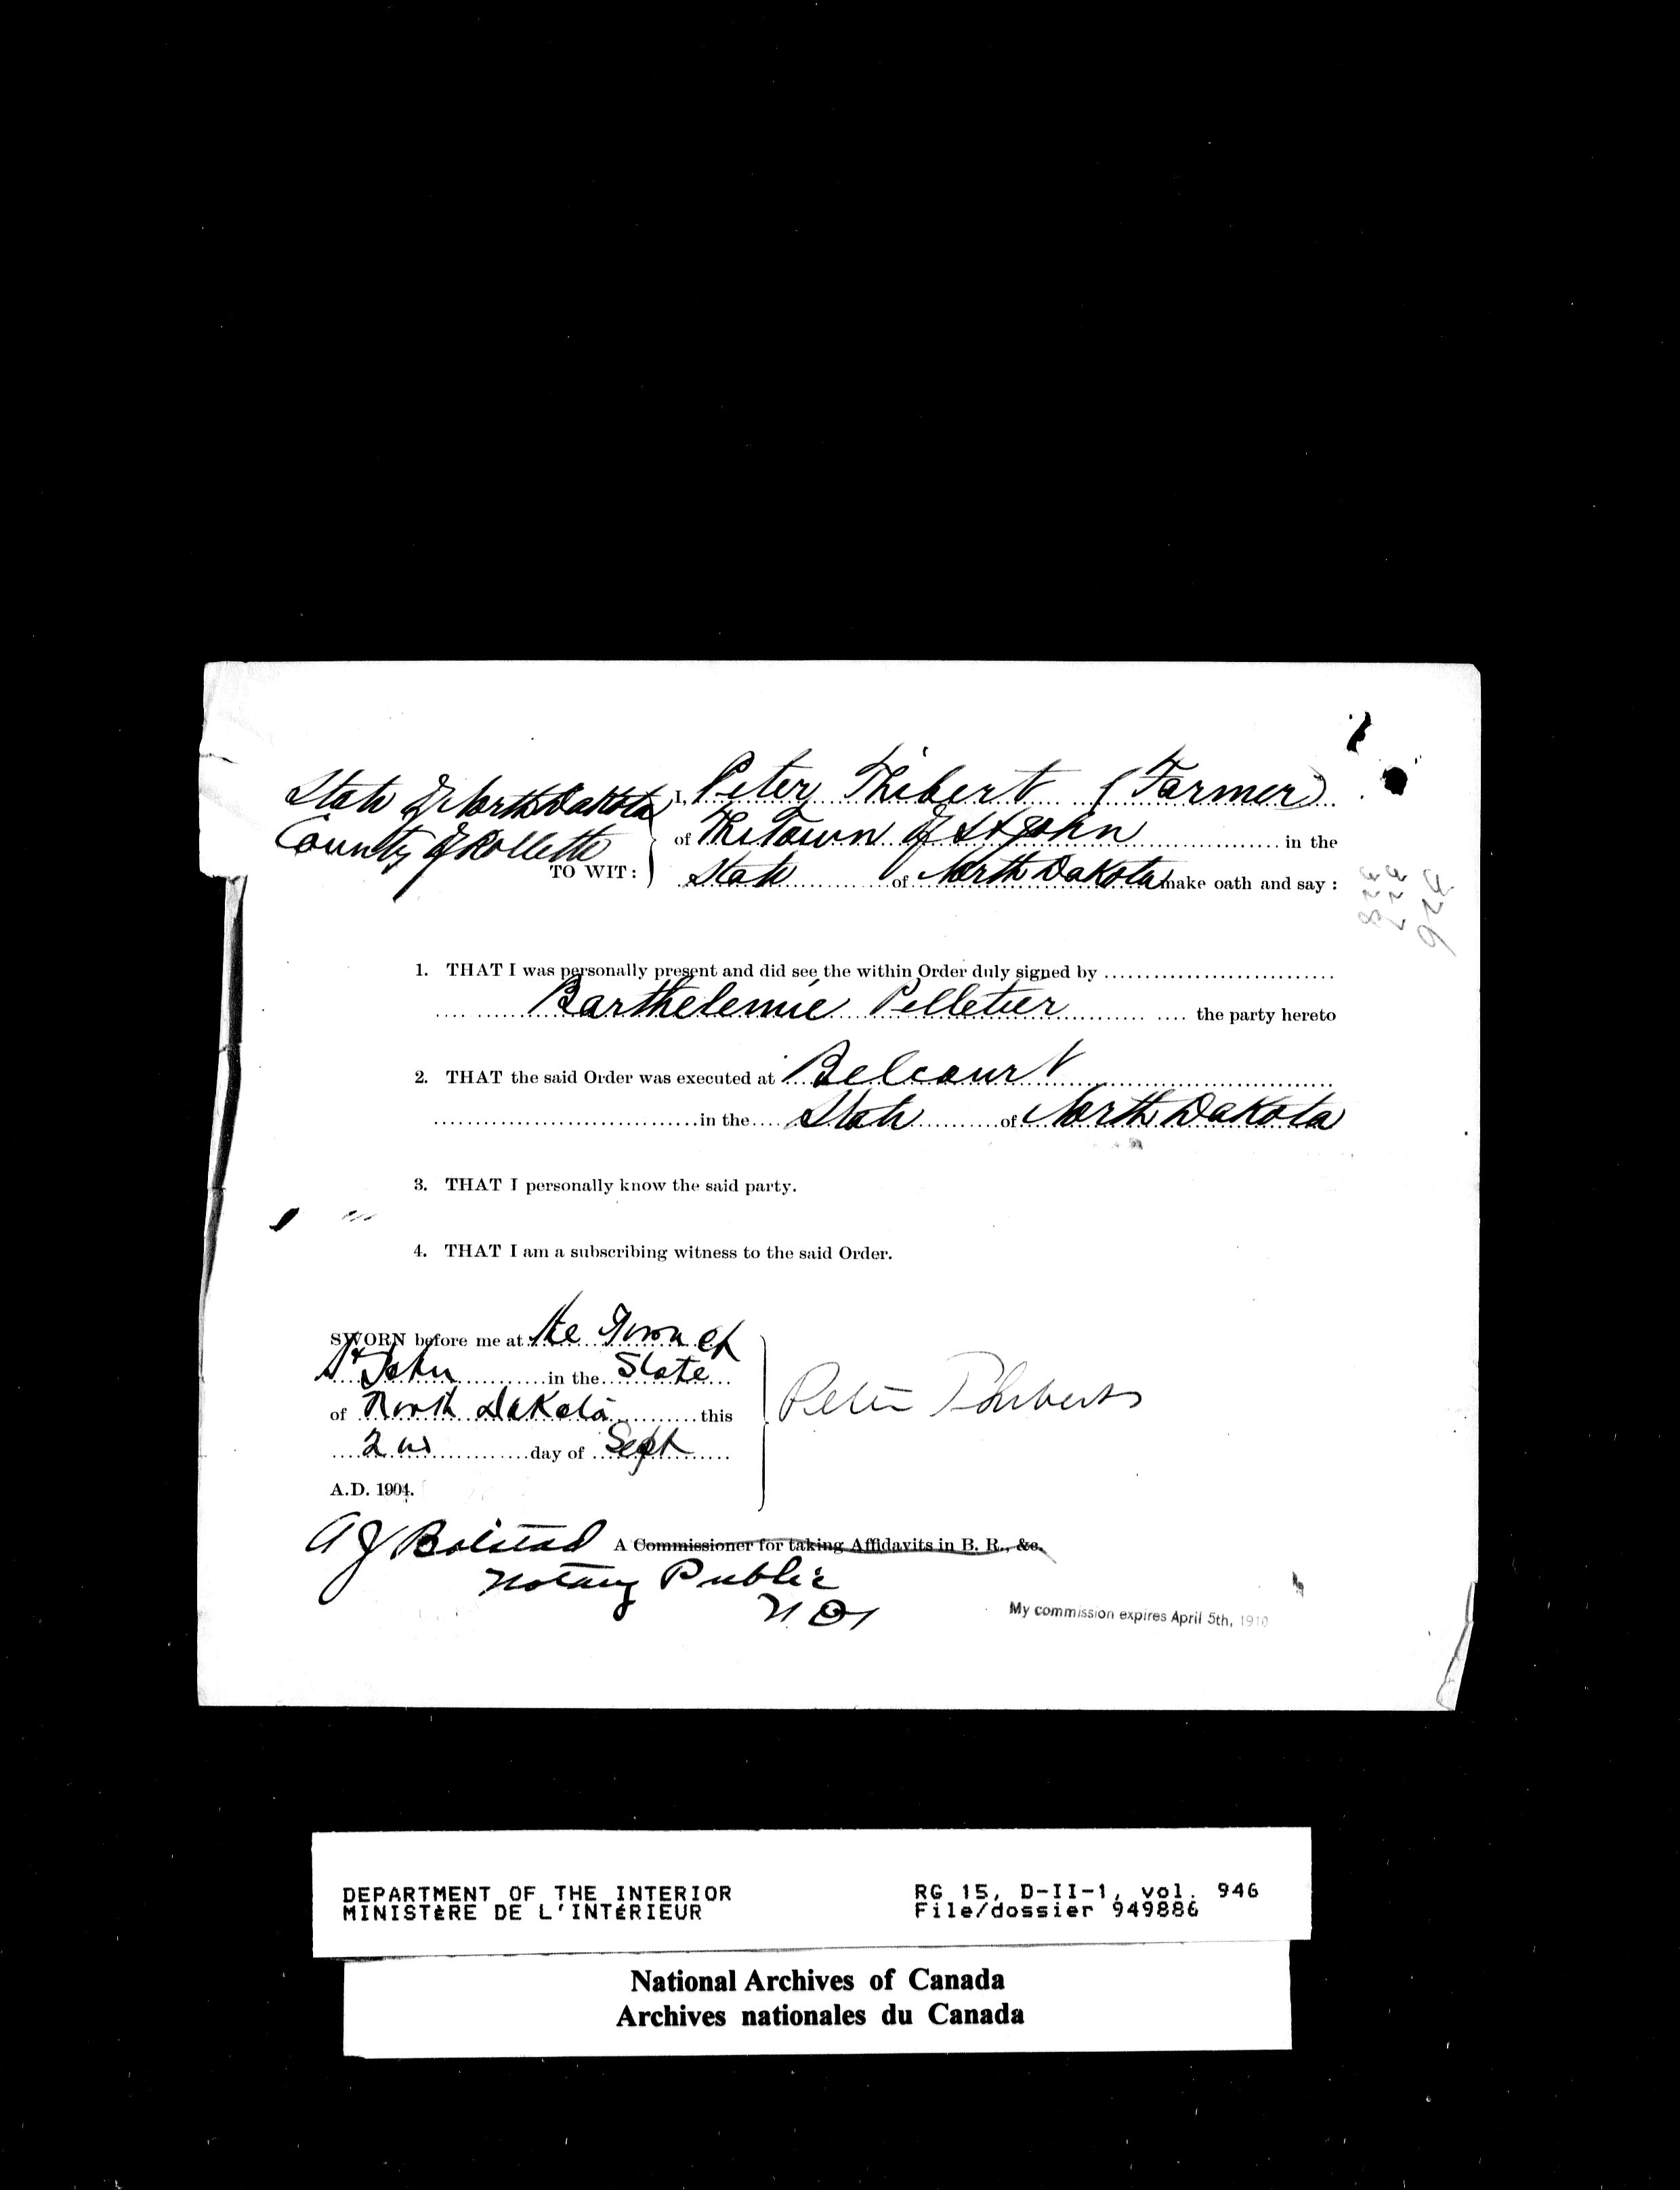 State of North Dakota I, Peter Thibert (Farmer)
County of Rollette of The Town of St John in the
TO WIT: State of North Dakota make oath and say :
326
327
328
1. THAT I was personally present and did see the within Order duly signed by
Barthelemie Pelletier the party hereto
2. THAT the said Order was executed at Belcourt
in the State of North Dakota
3. THAT I personally know the said party.
4. THAT I am a subscribing witness to the said Order.
SWORN before me at the Town of
St John in the State
of North Dakota this
2nd day of Sept
A.D. 1904.
Peter Thibert
A J Bolstad A Commissioner for taking Affidavits in B. R., &c.
Notary Public
N D
My commission expires April 5th, 1910
DEPARTMENT OF THE INTERIOR RG 15, D-II-1, vol. 946
MINISTÈRE DE L'INTÉRIEUR File/dossier 949886
National Archives of Canada
Archives nationales du Canada